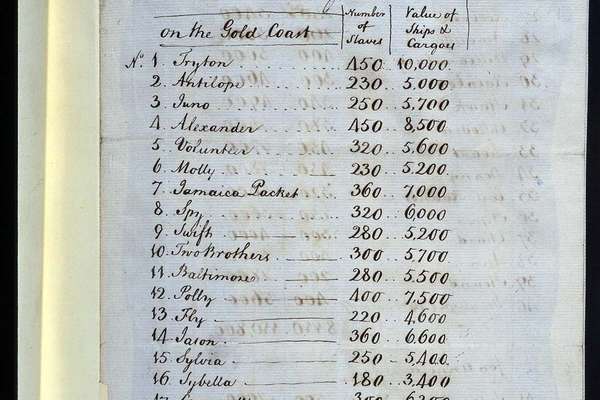 on the Gold Coast
Number of Slaves
Value of Ships & Cargoes
No. 1. Tryton 450 10,000
2. Antilope 230 5,000
3. Juno 250 5,700
4. Alexander 450 8,500
5. Volunteer 320 5,600
6. Molly 230 5,200
7. Jamaica Packet 360 7,000
8. Spy 320 6,000
9. Swift 280 5,200
10. Two Brothers 300 5,700
11. Baltimore 280 5,500
12. Polly 400 7,500
13. Fly 220 4,600
14. Jason 360 6,600
15. Sylvia 250 5,400
16. Sybella 180 3,400